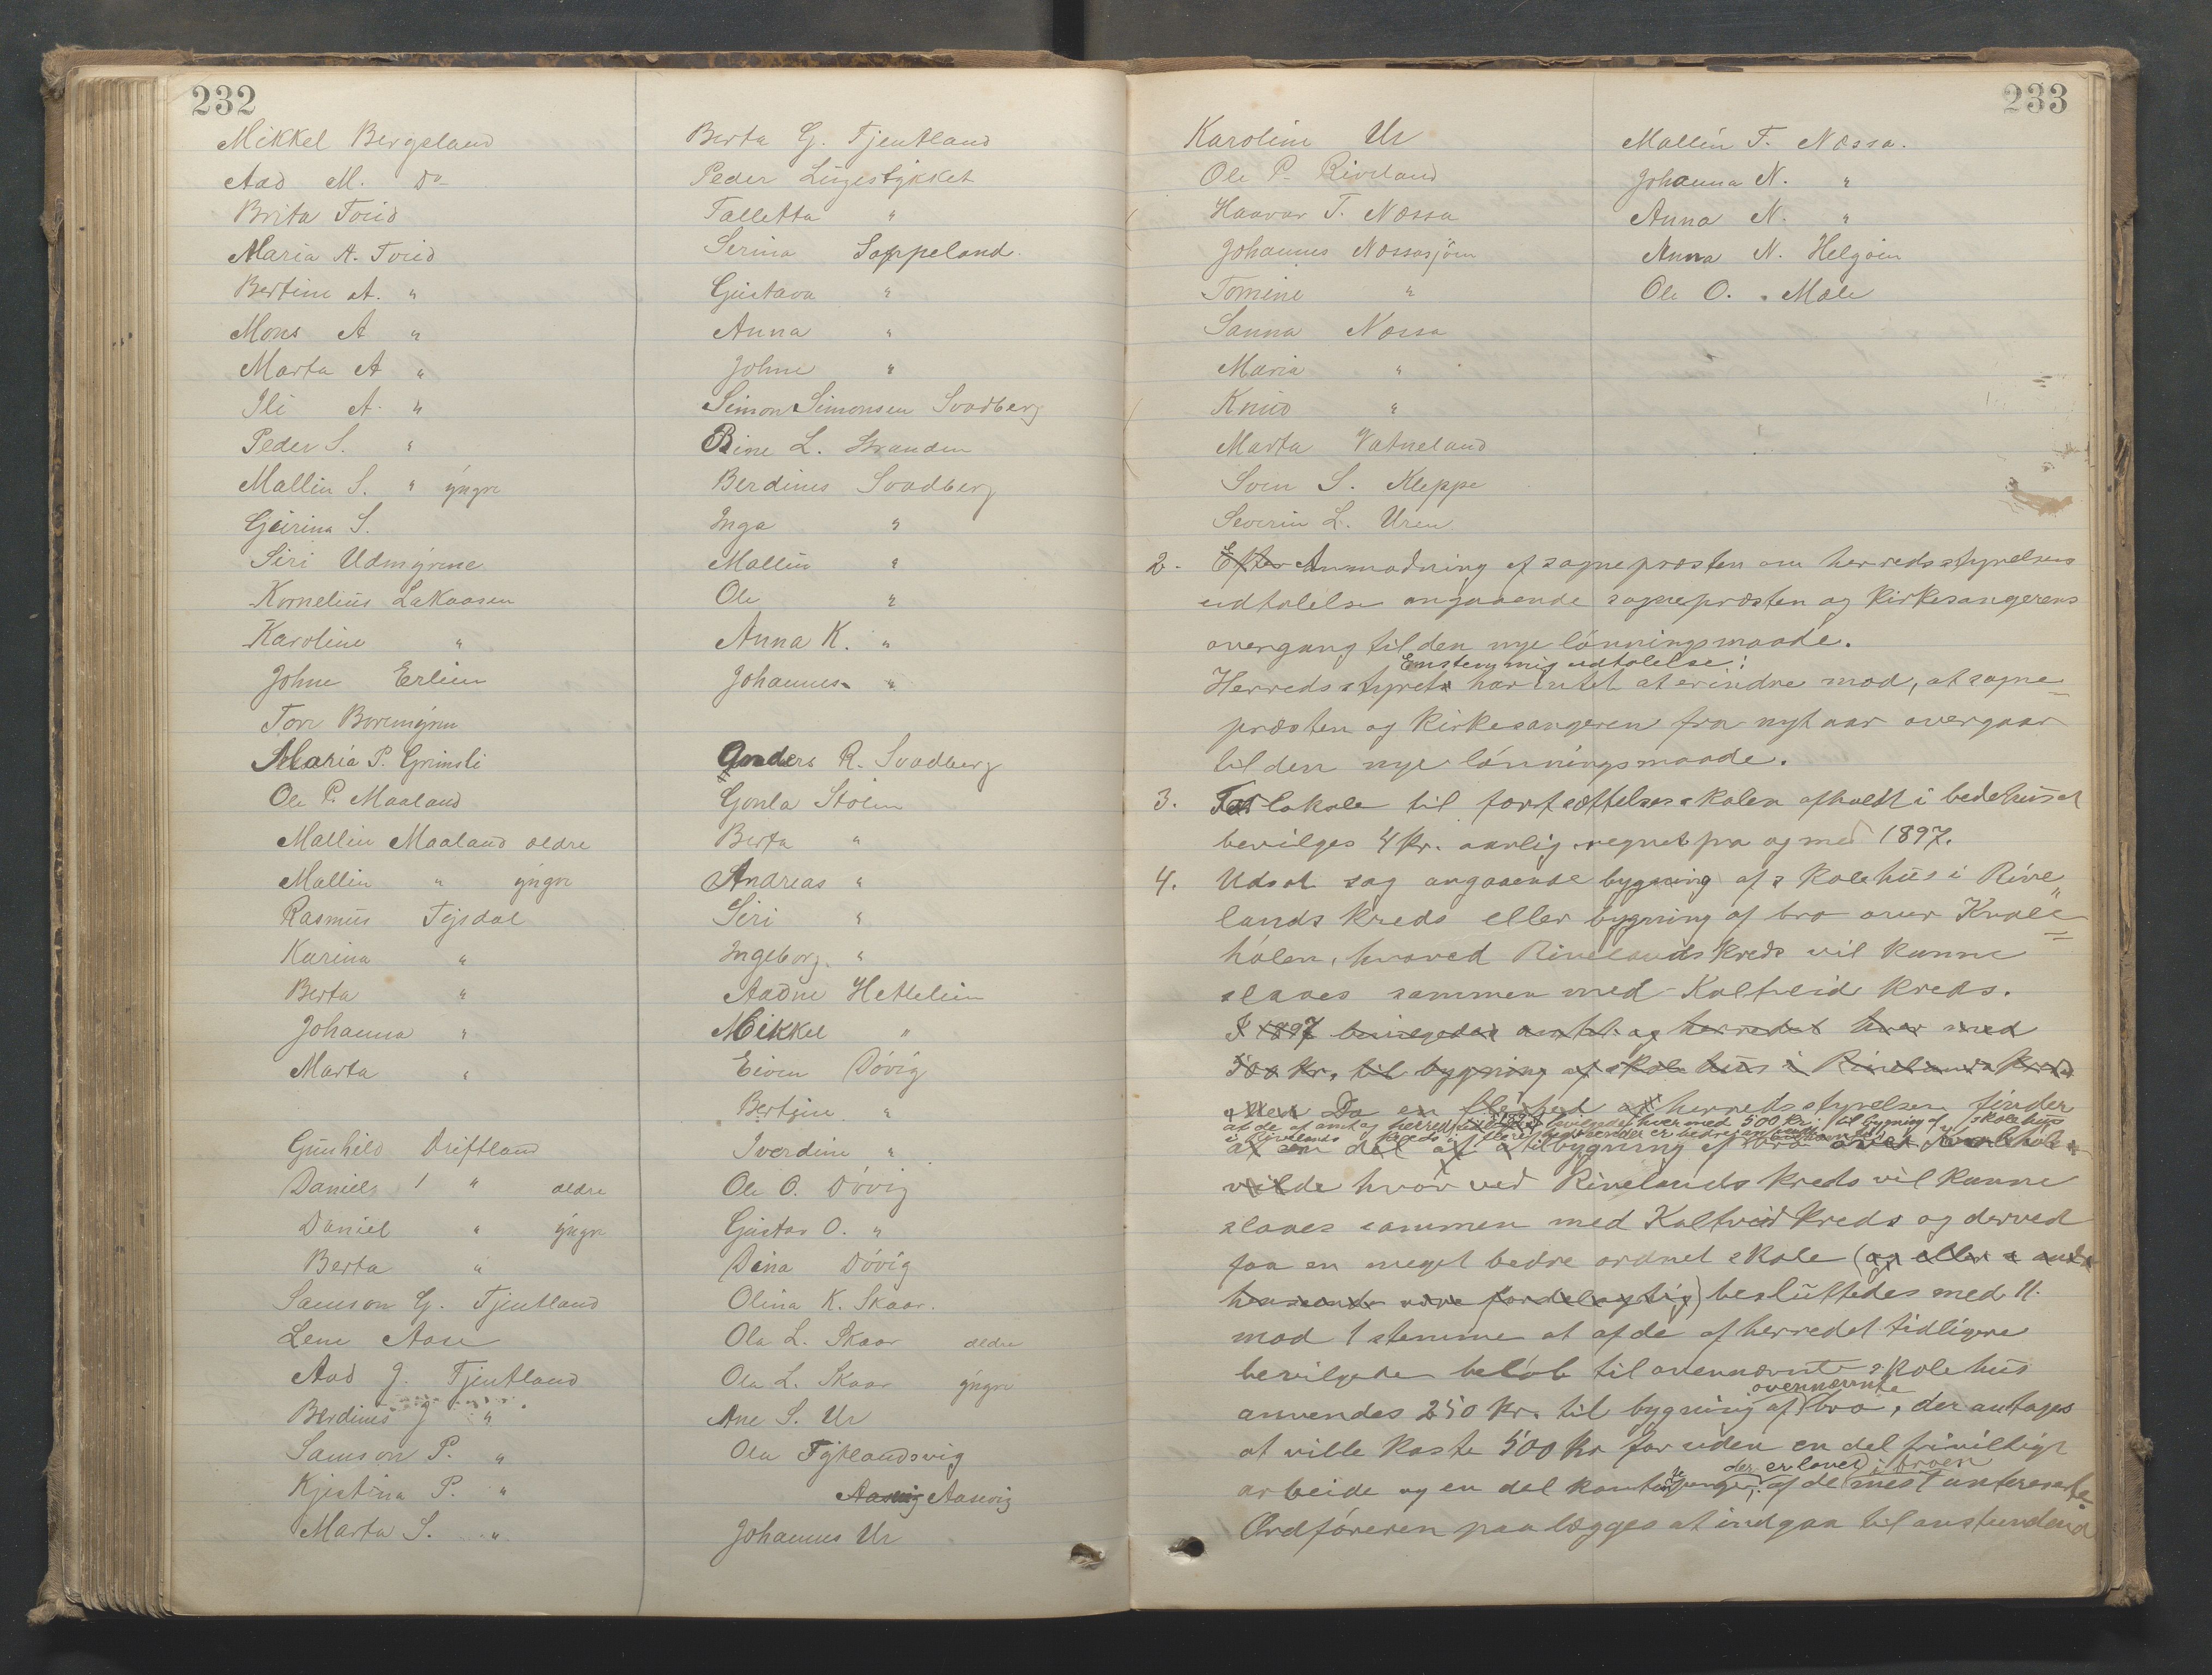 232
Mikkel Bergeland
Aad M. Do
Brita Tveid
Maria A. Tveid
Bertine A. "
Mons A "
Marta A "
Ili A. "
Peder S. "
Mallin S. " yngre
Geirina S.
Siri Udmyrene
Kornelius Lakaasen
Karoline "
Johne Erlien
Tore Boremyren
Maria P. Grimsli
Ole P. Maaland
Mallin Maaland ældre
Mallin " yngre
Rasmus Tysdal
Karina "
Berta "
Johanna "
Marta "
Gunhild Driftland
Daniel " ældre
Daniel " yngre
Berta "
Samson G. Tjentland
Lene Aase
Aad J. Tjentland
Berdines J "
Samson P. "
Kjistina P. "
Marta S. "
Berta G. Tjentland
Peder Lingestykket
Talletta "
Serina Søppeland
Gustava "
Anna "
Johne "
Simon Simonsen Svadberg
Rine L. Stranden
Berdines Svadberg
Inga "
Mallin "
Ole "
Anna K. "
Johannes "
Anders R. Svadberg
Gonla Stølen
Berta "
Andreas "
Siri "
Ingeborg "
Aadne Hettelien
Mikkel "
Eiven Døvig
Bertine "
Iverdine "
Ole O. Døvig
Gustav O. "
Dina Døvig
Olina K. Skaar.
Ola L. Skaar ældre
Ola L. Skaar yngre
Ane S. Ur
Ola Tytlandsvig
Aasvig Aasevig
Johannes Ur
233
Karoline Ur
Ole P. Riveland
Haavar T. Næssa
Johannes Næssasjøen
Tomine "
Sanna Næssa
Maria "
Knud "
Marta Vatneland
Svein S. Kleppe
Severin L. Uren
Mallin T. Næssa.
Johanna N. "
Anna N. "
Anna N. Helgøien
Ole O. Mæle
2. Efter Anmodning af sognepræsten om herredsstyrelsens
udtalelse angaaende sognepræsten og kirkesangerens
overgang til den nye lønningsmaade.
Enstemmig udtalelse:
Herredsstyret har intet at erindre mod, at sogne=
præsten og kirkesangeren fra nytaar overgaar
til den nye lønningsmaade.
3. For lokale til fortsættelsesskolen afholdt i bedehuset
bevilges 4 kr. aarlig regnet fra og med 1897.
4. Udsat sag angaaende bygning af skolehus i Rive=
lands kreds eller bygning af bro over Kvale=
hølen, hvorved Rivelands kreds vil kunne
slaaes sammen med Kaltveid kreds.
I 1897 bevilgedes amtet og herredet hver med
500 kr. til bygning af skolehus i Rivelands kreds
Men Da en flerhed af herredsstyrelsen finder
at de af amt og herred bevilgede hver med 500 kr. til bygning af skolehus
i Rivelands kreds i flere henseender er bedre
at en del af til bygning af bro over Kvalehølen
vilde hvorved Rivelands kreds vil kunne
slaaes sammen med Kaltveid kreds og derved
faa en meget bedre ordnet skole (og ellers i andre
henseende være fordelagtig) besluttedes med 11
mod 1 stemme at af de af herredet tidligere
bevilgede beløb til ovennævnte skolehus
ovennævnte
anvendes 250 kr. til bygning af bro, der antages
at ville koste 500 kr foruden en del frivilligt
der er lovet i broen
arbeide og en del kontanter penge, af de mest interesserte
Ordføreren paalægges at indgaa til anstundend